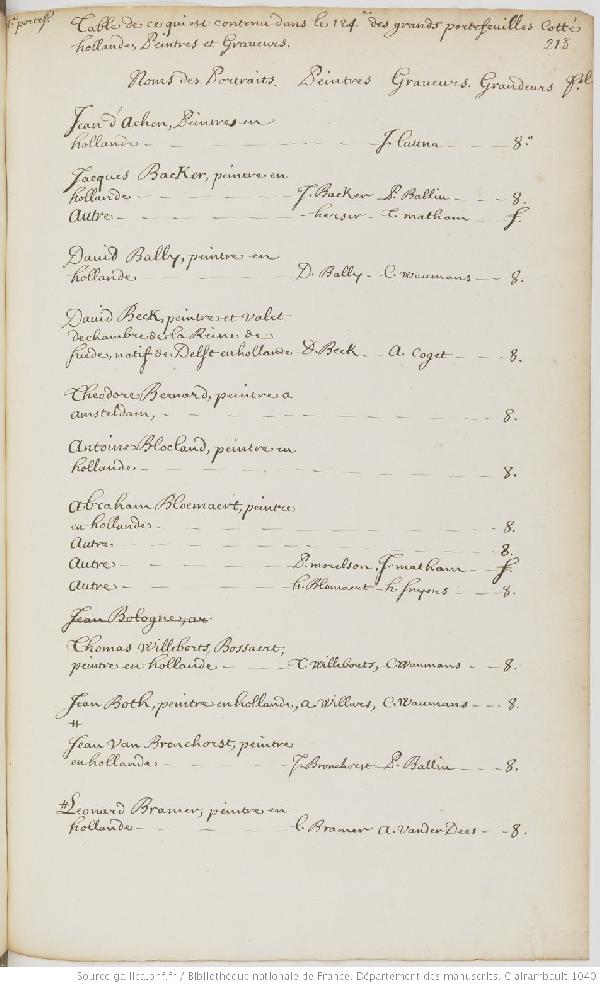 Table de ce qui est contenu dans le 124.e des grands portefeuilles Cotté
hollande, Peintres et Graveurs. 213
Noms des Portraits. Peintres Graveurs. Grandeurs
Jean d'Achen, Peintres en
hollande J. 8.o
Jacques Backer, peintre en
hollande J. Backer P. Balliu 8.
Autre matham f.
David Bally, peintre en
hollande D. Bally C. Waumans 8.
David Beck, peintre et valet
de chambre de la Reine de
suede, natif de Delft en hollande D. Beck A. Coget 8.
Theodore Bernard, peintre a
amsteldam, 8.
Antoine Blocland, peintre en
hollande 8.
Abraham Bloemaert, peintre
en hollande 8.
Autre 8.
Autre P. morelson J. matham f.
Autre h. Blomaert h. snyers 8.
Jean Bologne,
Thomas Willeborts, Bossaert,
peintre en hollande T. Willeborts, C. Waumans 8.
Jean Both, peintre en hollande, a. Willars, C. Waumans 8.
#
Jean Van Bronchorst, peintre
en hollande J. Bronchorst P. Balliu 8.
#Leonard Bramer, peintre en
hollande L. Bramer A. Vander Dees 8.
Source gallica.bnf.fr / Bibliothèque nationale de France. Département des manuscrits. Clairambault 1040